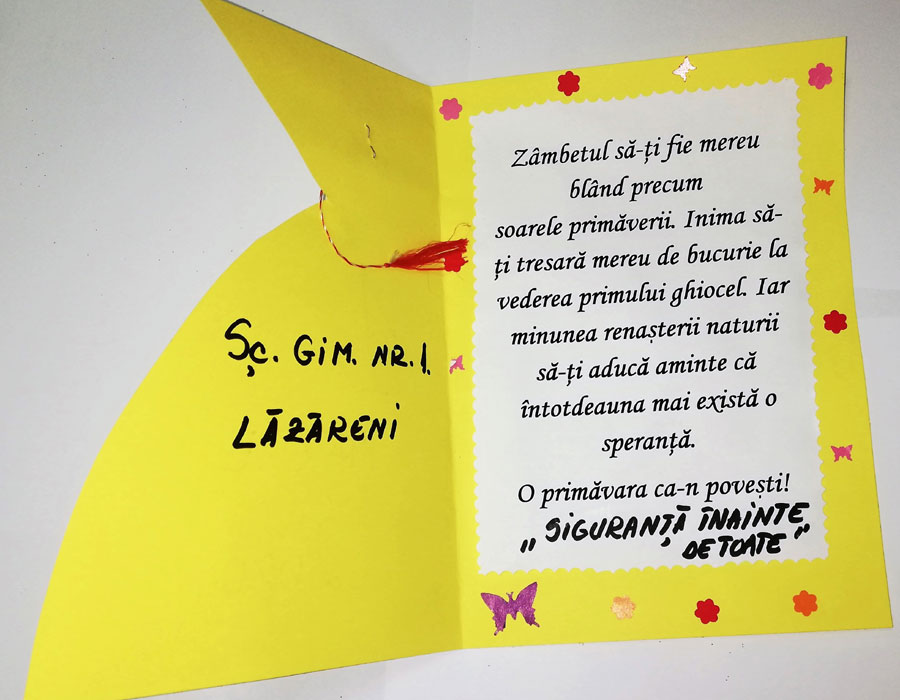 Șc. GiM. NR. 1.
LĂZĂRENi
Zâmbetul să-ți fie mereu
blând precum
soarele primăverii. Inima să-
ți tresară mereu de bucurie la
vederea primului ghiocel. Iar
minunea renașterii naturii
să-ți aducă aminte că
întotdeauna mai există o
speranță.
O primăvara ca-n povești!
„SiGURANȚĂ ÎNAiNTE
DE TOATE”